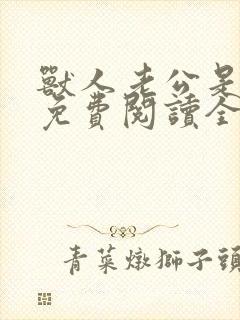 獸人老公是
免費閱讀全
青菜燉獅子頭